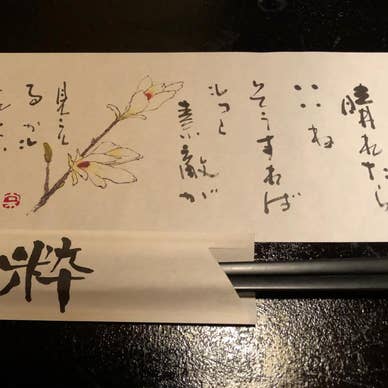 晴れたら
いいね
そうすれば
もっと
素敵が
見え
るから
粋